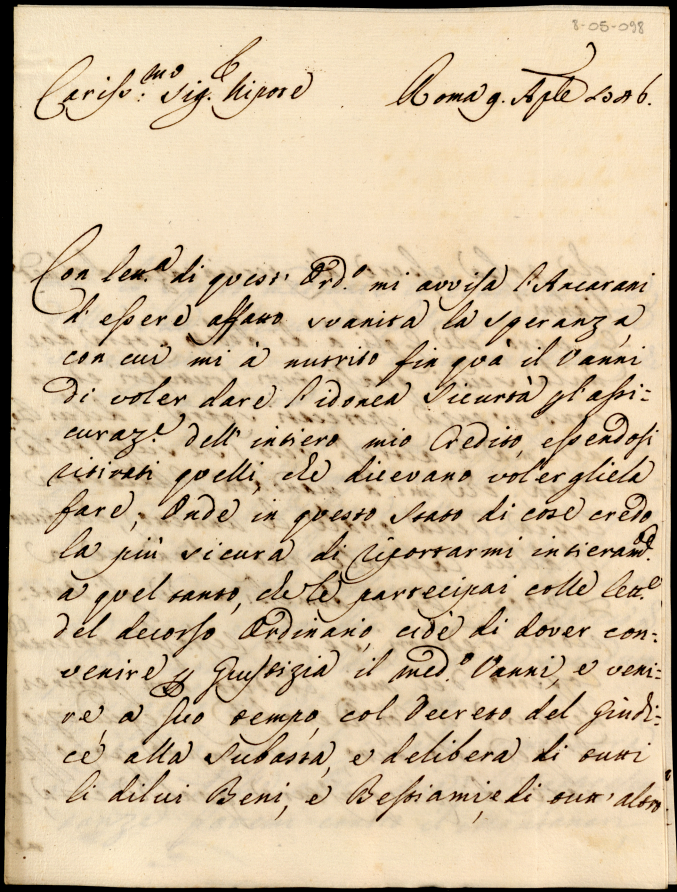 8-05-098
Cariss.mo Sig.e Nipote Roma 9. Aple 1746.
Con lett.a di quest' Ord.o mi avvisa l'Ancarani
d'essere affatto svanita la speranza,
con cui mi à nutrito fin quà il Vanni
di voler dare l'idonea Sicurtà pl'assi-
curaz.e dell' intiero mio Credito, essendosi
ritirati quelli, che dicevano volergliela
fare, Onde in questo stato di cose credo
la più sicura di riportarmi intieram.e
a quel tanto, che le partecipai colle lett.e
del decorso Ordinario, cioè di dover con-
venire p Giustizia il med.o Vanni, e veni-
re, a suo tempo, col Decreto del Giudi-
ce alla Subasta, e delibera di tutti
li dilui Beni, e Bestiami, e di tutt' altro